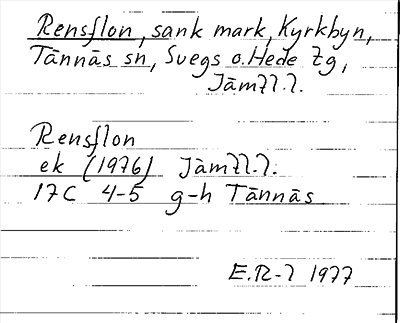 Rensflon, sank mark, Kyrkbyn,
Tännäs sn, Svegs o. Hede tg,
Jämtl. l.
Rensflon
ek (1976) Jämtl. l.
17C 4-5 g-h Tännäs
E.R-l 1977